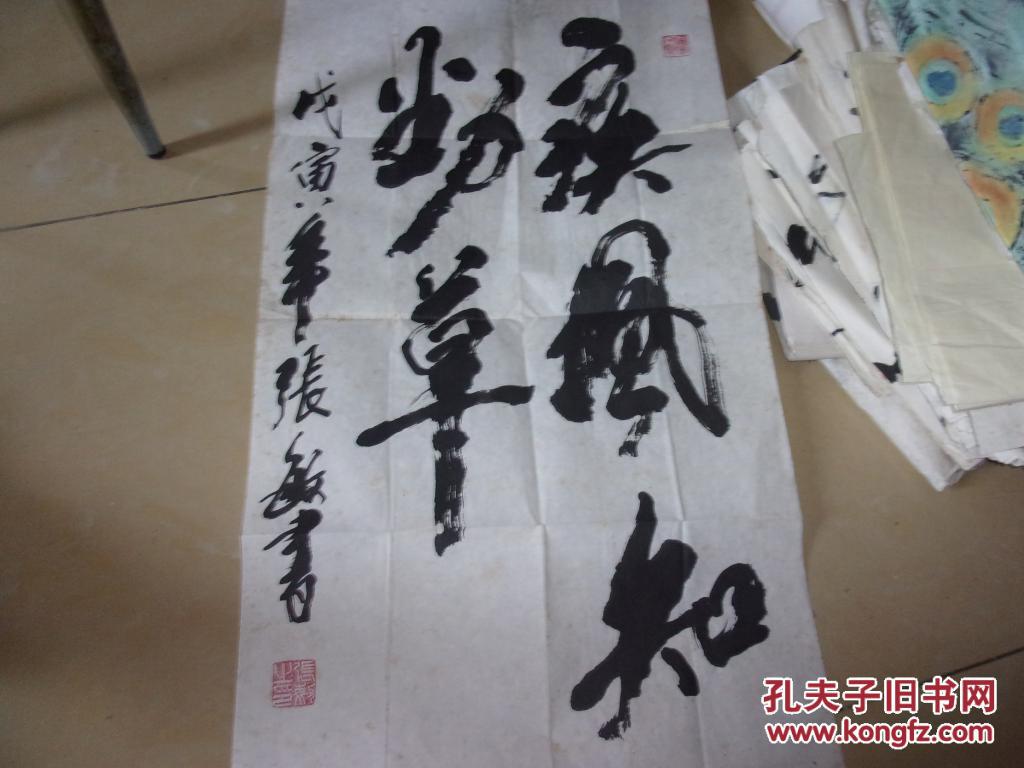 疾風知
勁草
戊寅年張敏書
孔夫子旧书网
www.kongfz.com